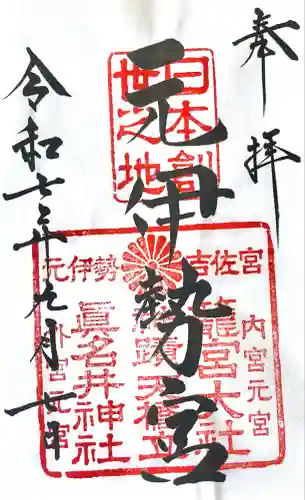 奉拝
日本創
世之地
元伊勢宮
吉佐宮
内宮元宮
籠宮大社
元伊勢
眞名井神社
外宮元宮
令和七年九月廿日